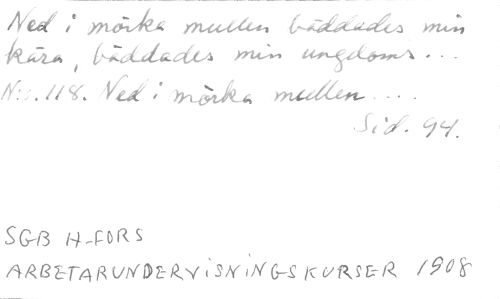 Ned i mörka mullen bäddades min
kära, bäddades min ungdoms...
N:o. 118. Ned i mörka mullen ....
Sid. 94.
SGB H-FORS
ARBETARUNDERVISNINGSKURSER 1908